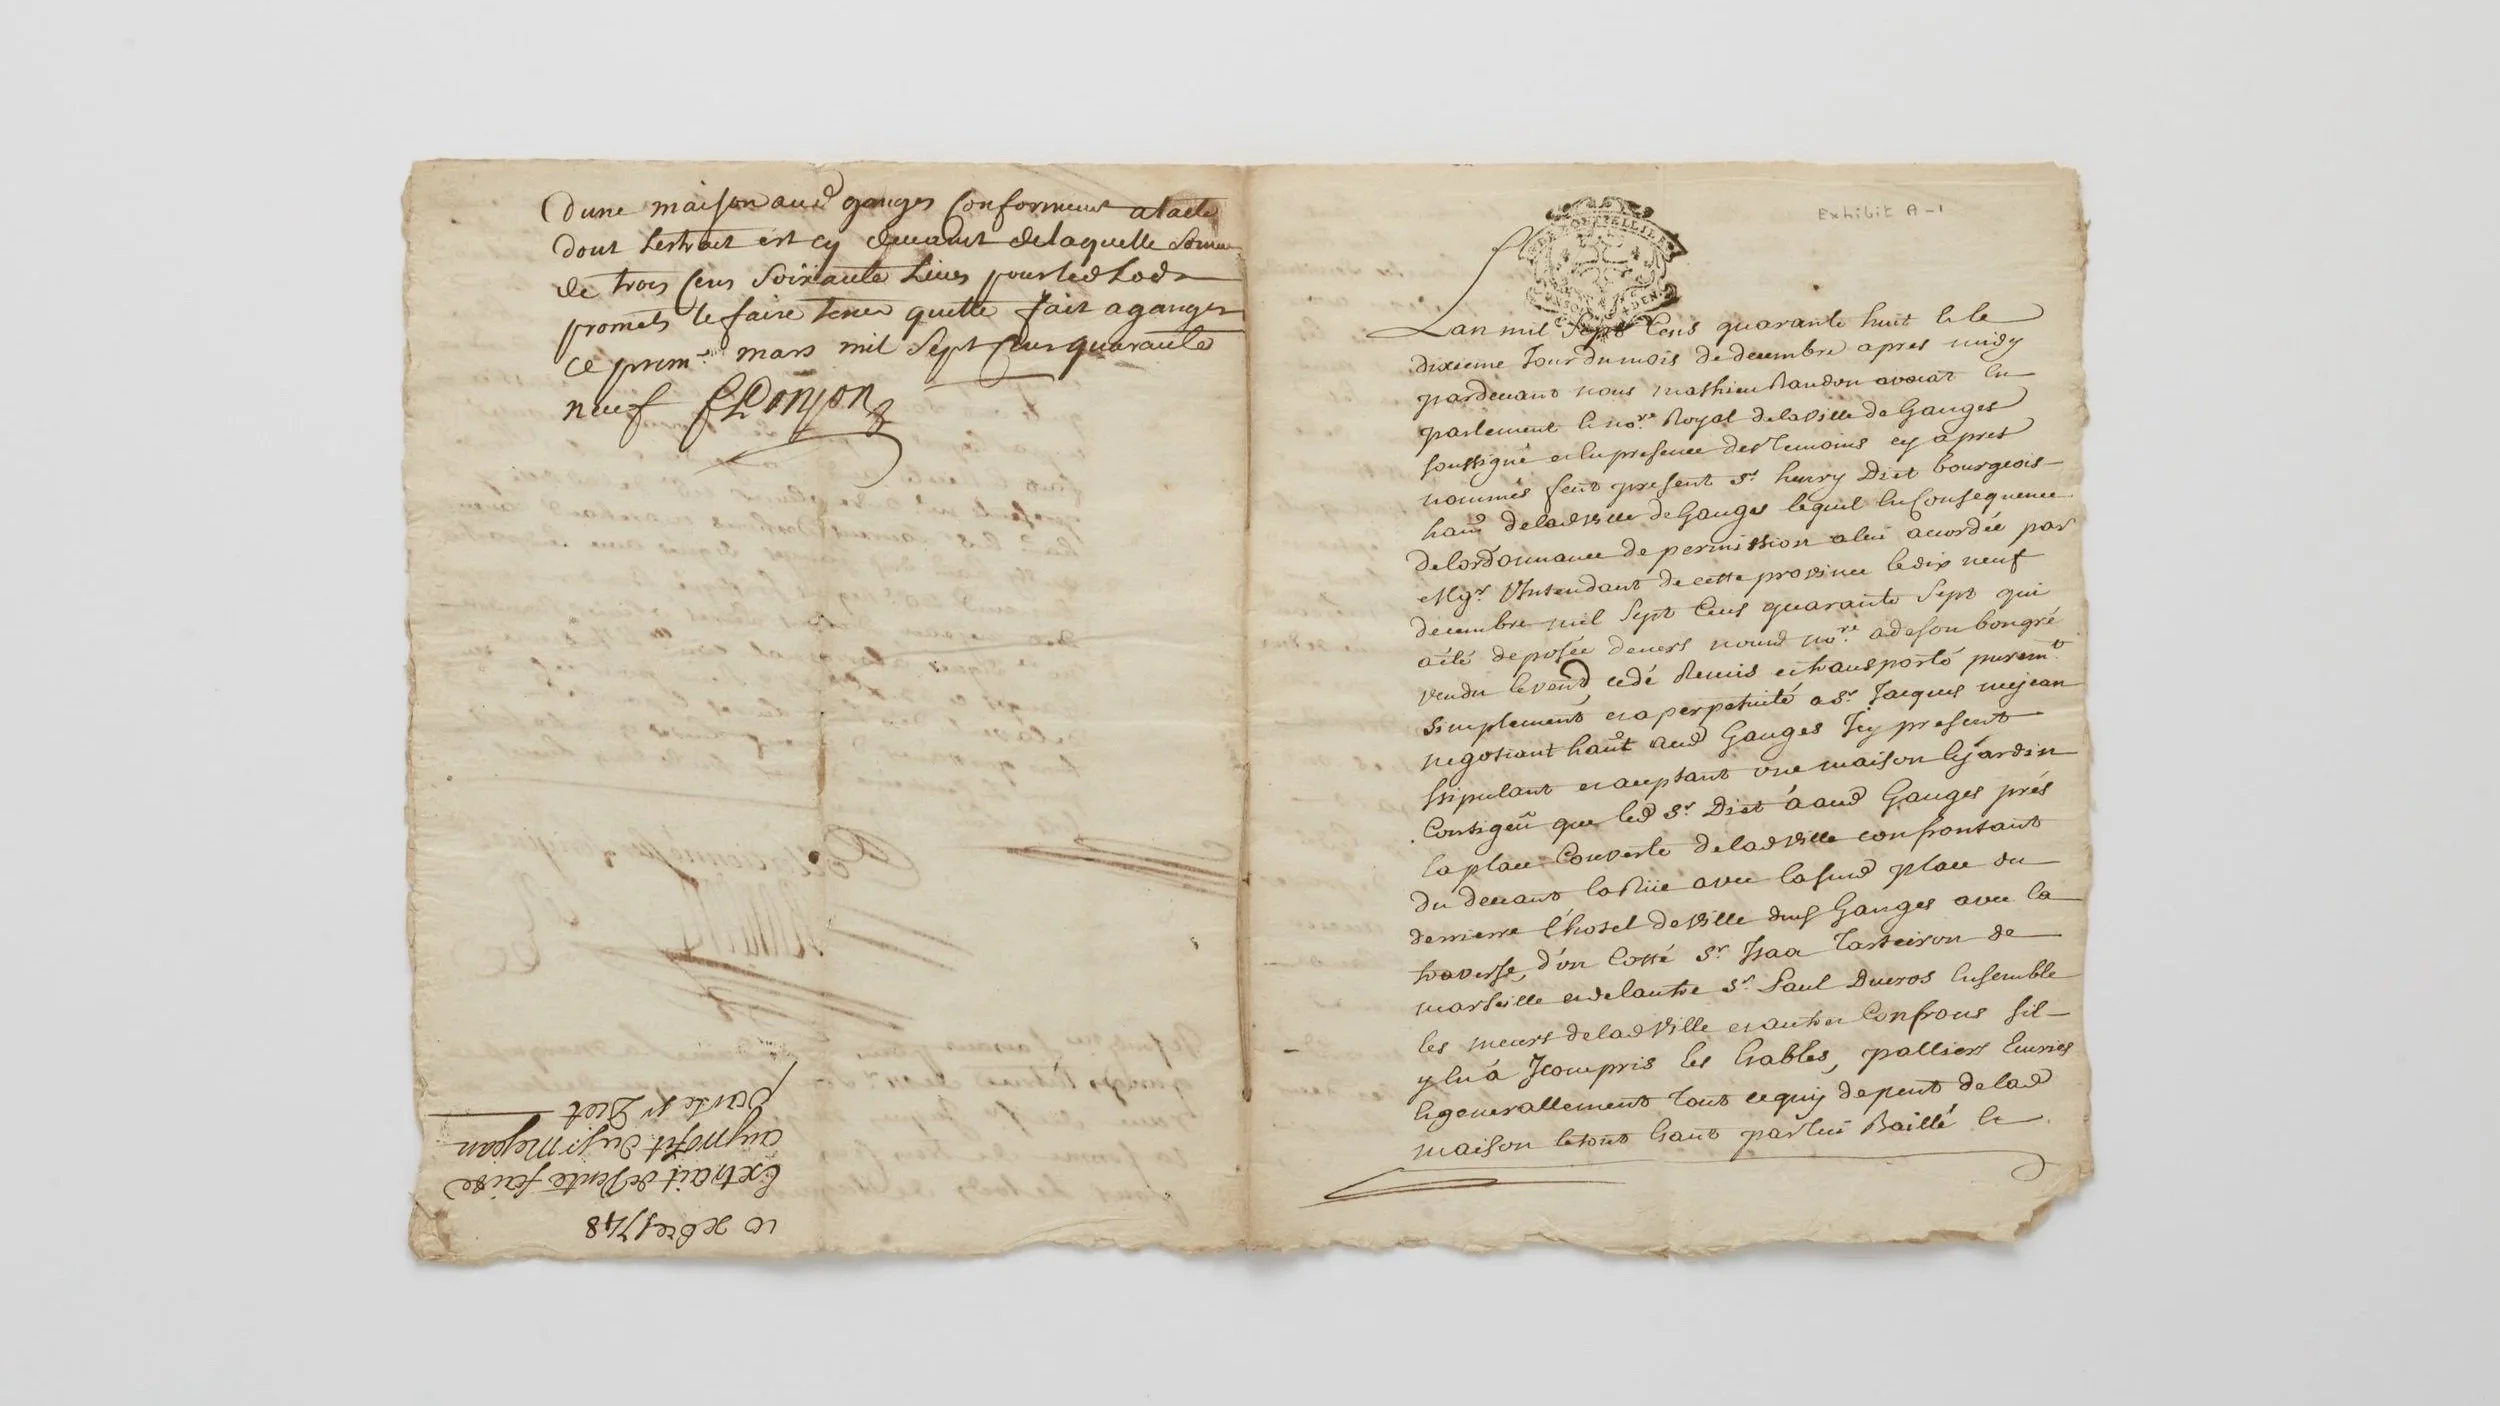 Dune maison aud ganges Conformemt a lacte
dont Lextrait est cy devant de laquelle somme
de trois Cens soixante Livres pour led Lods
promets le faire tenir quitte fait a ganges
ce premr mars mil Sept Cens quarante
neuf Donjon
10 xbre 1748
Extrait de Vente faite
au profit du sr Mejan
par le sr Diet
Exhibit A-1
DE MONTPELLIER
Lan mil Sept Cens quarante huit & le
dixieme Jour du mois de decembre apres midy
pardevant nous mathieu Randon avocat En
parlement & nore Royal de la Ville de Ganges
soussigné et En presence des Temoins cy apres
nommés feut present Sr henry Diet bourgeois
hant de lad Ville de Ganges lequel En Consequence
de lordonnance de permission a lui accordée par
Mgr L'Intendant de cette province le dix neuf
decembre mil Sept Cens quarante Sept qui
a été deposée devers nousd nore a de son bongré
vendu & vend cedé Remis et transporté puremt
simplement et a perpetuité a Sr Jacques mejean
negotiant hant aud Ganges Icy present
stipulant et acceptant une maison & jardin
Contigeu que led Sr Diet a aud Ganges prés
la place Couverte de lad Ville confrontant
du devant la Rüe avec lasusd place du
derriere l'hotel de Ville dud Ganges avec la
traverse, d'un Cotté Sr Isaa Tarteiron de
marseille et de lautre Sr Paul Ducros Ensemble
les meurs de lad Ville et autres Confrons sil
y En a Jcompris les Estables, palliers Ecuries
& generallement Tout ce quy depent de lad
maison le tout Estant par lui Baillé &